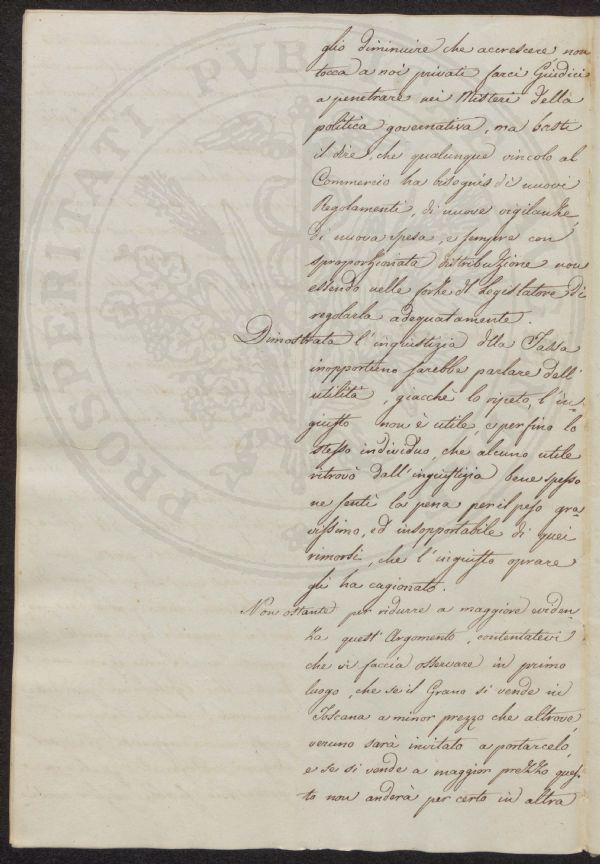 glio diminuire che accrescere non
tocca a noi privati farci Giudici
a penetrare nei Misteri della
politica governativa, ma basti
il dire, che qualunque vincolo al
Commercio ha bisogno di nuovi
Regolamenti, di nuove vigilanze,
di nuova spesa, e sempre con
sproporzionata distribuzione non
essendo nelle forze del Legislatore di
regolarla adeguatamente.
Dimostrata l'ingiustizia della Tassa
inopportuno sarebbe parlare dell'
utilità, giacchè lo ripeto, l'in-
giusto non è utile, e perfino lo
stesso individuo, che alcuno utile
ritrovò dall'ingiustizia bene spesso
ne sentì la pena per il peso gra-
vissimo, ed insopportabile di quei
rimorsi, che l'ingiusto oprare
gli ha cagionato.
Non ostante per ridurre a maggiore eviden-
za quest'Argomento, contentatevi
che vi faccia osservare in primo
luogo, che se il Grano si vende in
Toscana a minor prezzo che altrove,
veruno sarà invitato a portarcelo,
e se si vende a maggior prezzo ques-
to non anderà per certo in altra
PROSPERITATI PVBL